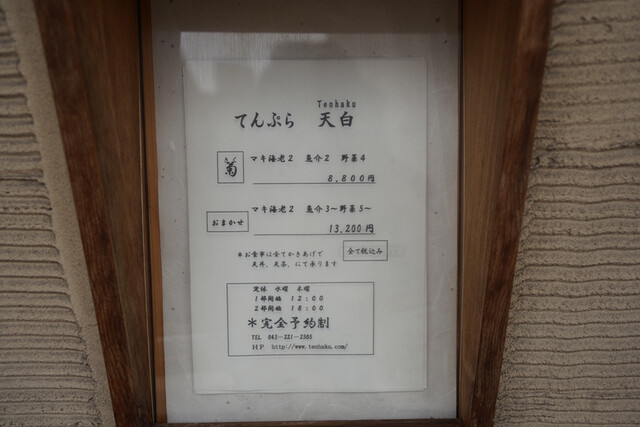 Tenhaku
てんぷら 天白
菊 マキ海老2 魚介2 野菜4
8,800円
おまかせ マキ海老2 魚介3～野菜5～
13,200円
＊お食事は全てかきあげで
天丼、天茶、にて承ります
全て税込み
定休 水曜 木曜
1部開始 12:00
2部開始 18:00
＊完全予約制
TEL 043－221－2365
HP http://www.tenhaku.com/